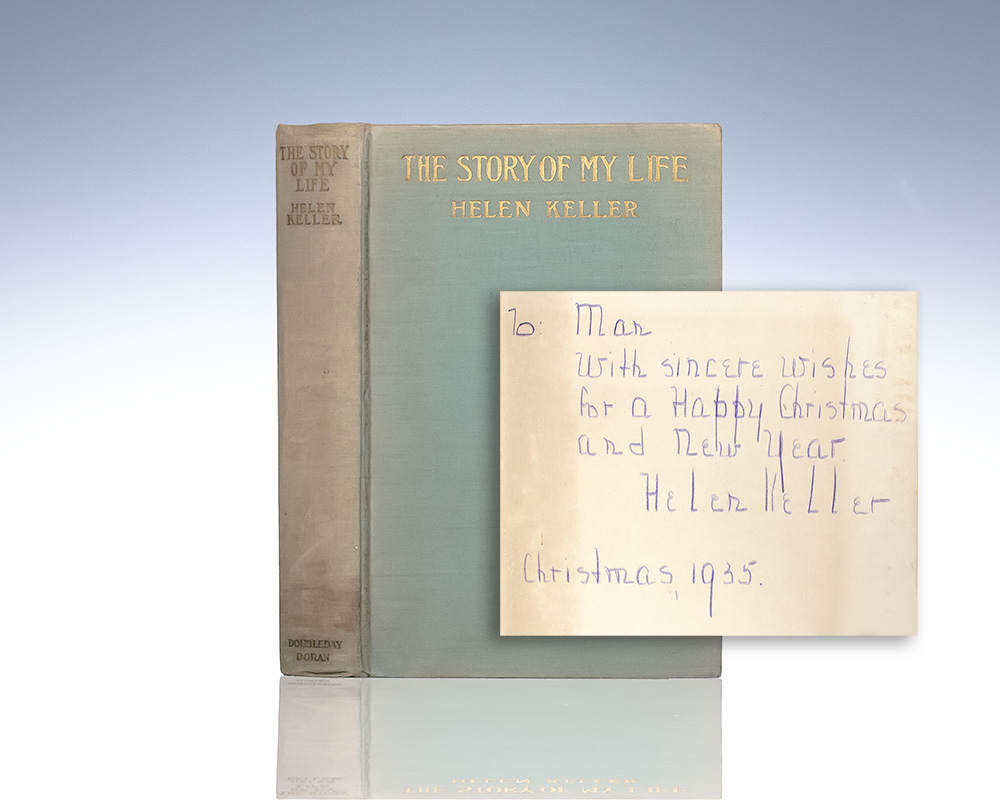 THE STORY
OF MY
LIFE
HELEN
KELLER
DOUBLEDAY
DORAN
THE STORY OF MY LIFE
HELEN KELLER
To: Man
With sincere wishes
for a Happy Christmas
and New Year.
Helen Keller
Christmas, 1935.